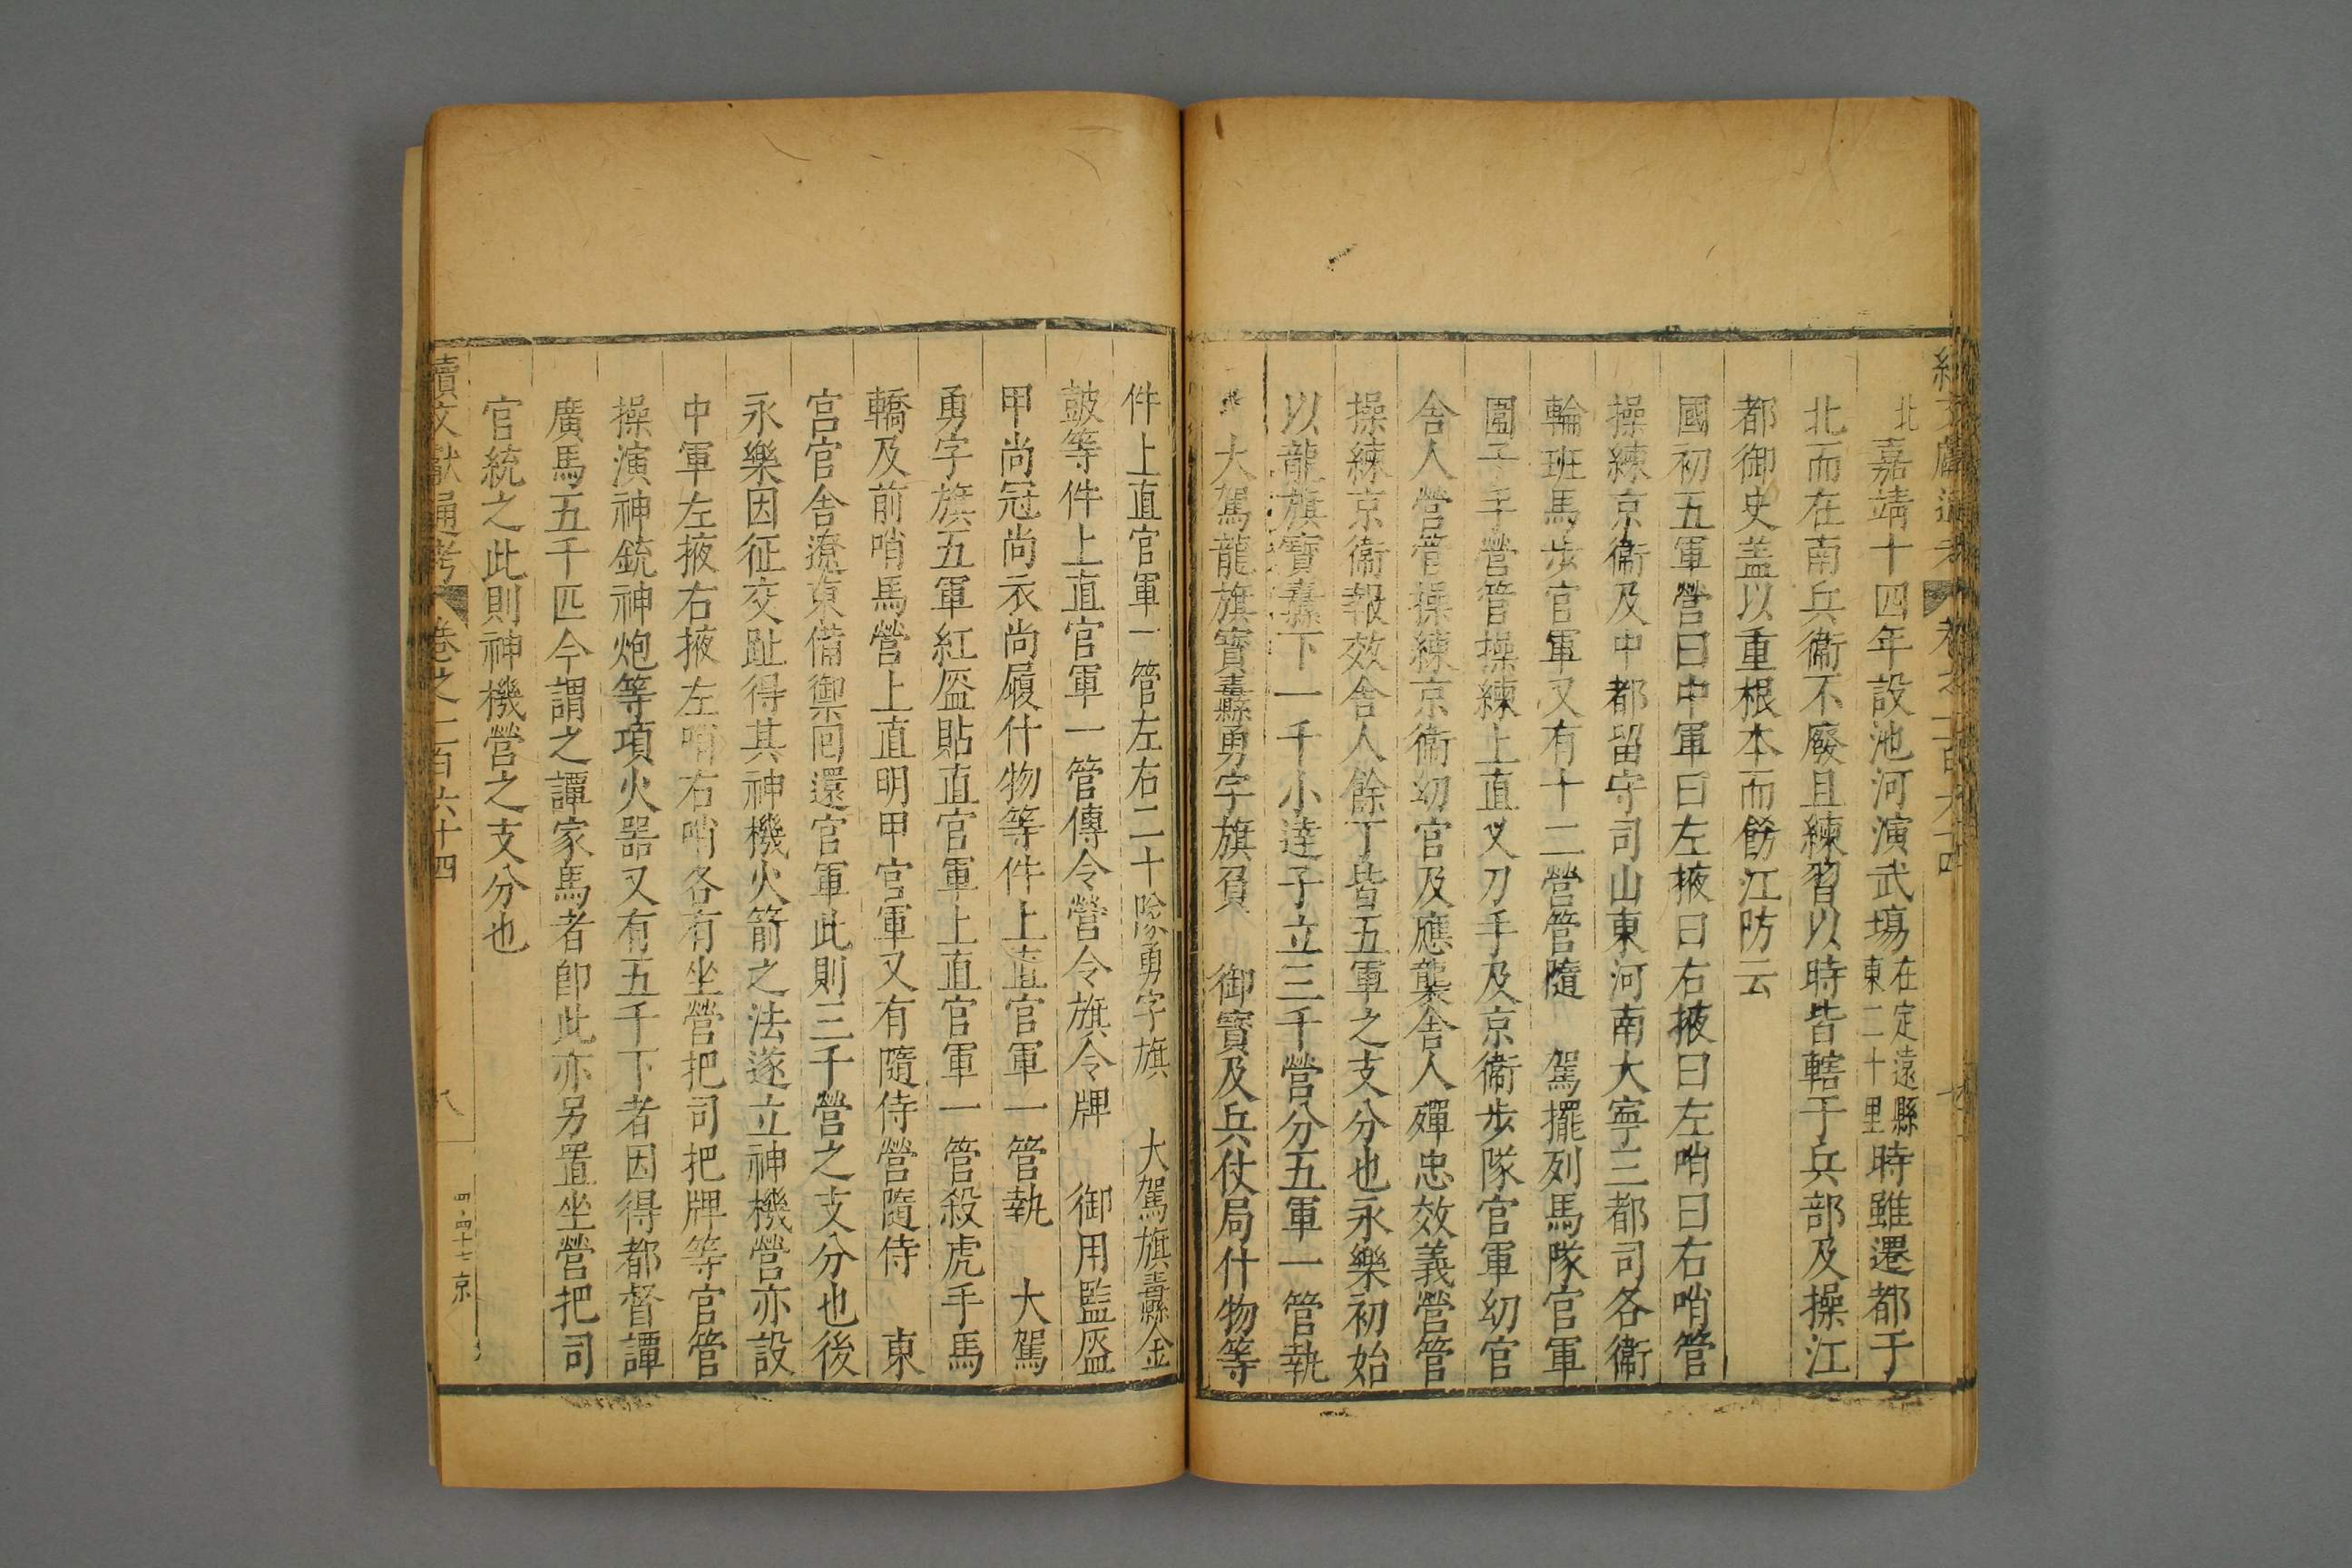 北嘉靖十四年設池河演武場在定遠縣東二十里時雖還都于
北而在南兵衞不廢且練習以時皆轄于兵部及操江
都御史盖以重根本而餙江防云
國初五軍營曰中軍曰左掖曰右掖曰左哨曰右哨管
操練京衞及中都留守司山東河南大寧三都司各衞
輪班馬步官軍又有十二營管隨 駕擺列馬隊官軍
圍子手營管操練上直叉刀手及京衞步隊官軍幼官
舍人營管操練京衞幼官及應襲舍人殫忠效義營管
操練京衞報效舍人餘丁皆五軍之支分也永樂初始
以龍旗寶纛下一千小達子立三千營分五軍一管執
大駕龍旗寶纛勇字旗負 御寶及兵仗局什物等
件上直官軍一管左右二十隊勇字旗 大駕旗纛金
鼓等件上直官軍一管傳令營令旗令牌 御用監盔
甲尚冠尚衣尚履什物等件上直官軍一管執 大駕
勇字旗五軍紅盔貼直官軍上直官軍一管殺虎手馬
轎及前哨馬營上直明甲官軍又有隨侍營隨侍 東
宫官舍遼東備禦囘還官軍此則三千營之支分也後
永樂因征交趾得其神機火箭之法遂立神機營亦設
中軍左掖右掖左哨右哨各有坐營把司把牌等官管
操演神銃神炮等項火器又有五千下者因得都督譚
廣馬五千匹今謂之譚家馬者卽此亦另置坐營把司
官統之此則神機營之支分也
續文獻通考 卷之一百六十四 八